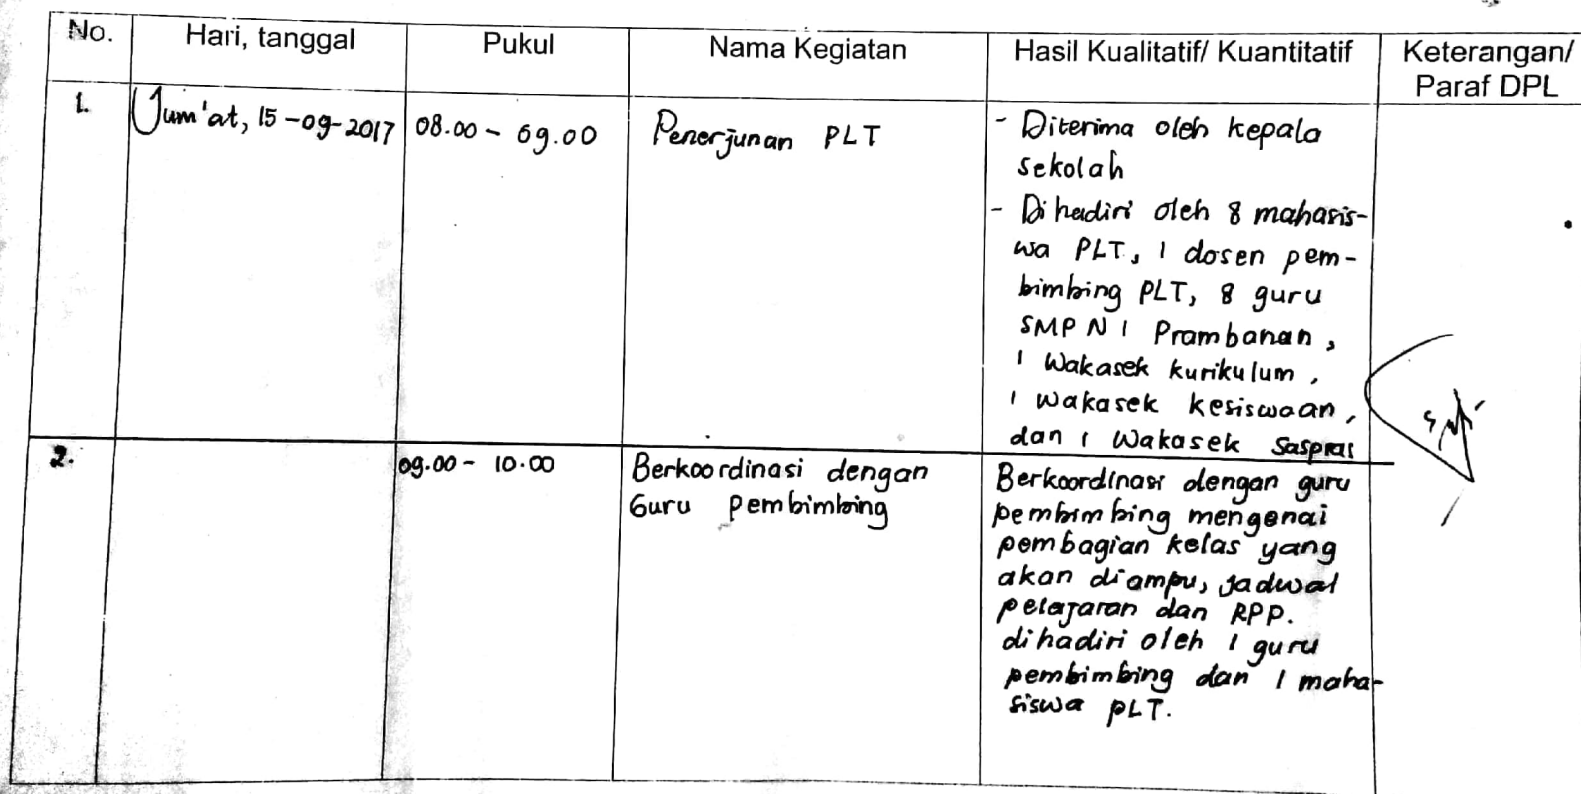 No. Hari, tanggal Pukul Nama Kegiatan Hasil Kualitatif/ Kuantitatif Keterangan/
Paraf DPL
1. Jum'at, 15-09-2017 08.00 - 09.00 Penerjunan PLT - Diterima oleh kepala
sekolah
- Dihadiri oleh 8 mahasis-
wa PLT, 1 dosen pem-
bimbing PLT, 8 guru
SMP N 1 Prambanan,
1 Wakasek kurikulum,
1 wakasek kesiswaan,
dan 1 Wakasek Saspras
2. 09.00 - 10.00 Berkoordinasi dengan
Guru Pembimbing
Berkoordinasi dengan guru
pembimbing mengenai
pembagian kelas yang
akan diampu, jadwal
pelajaran dan RPP.
dihadiri oleh 1 guru
pembimbing dan 1 maha-
siswa PLT.